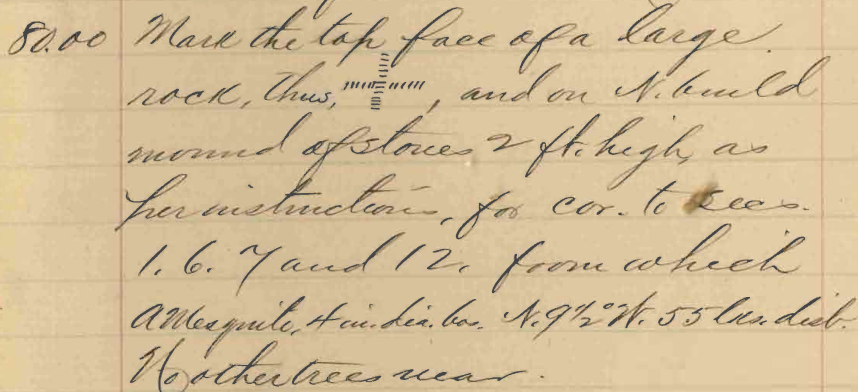 80.00 Mark the top face of a large
rock, thus, , and on N. build
mound of stones 2 ft. high, as
per instructions, for cor. to Secs.
1. 6. 7 and 12. from which
A Mesquite, 4 in. dia. bas. N. 9½° W. 55 lks. dist.
No other trees near.